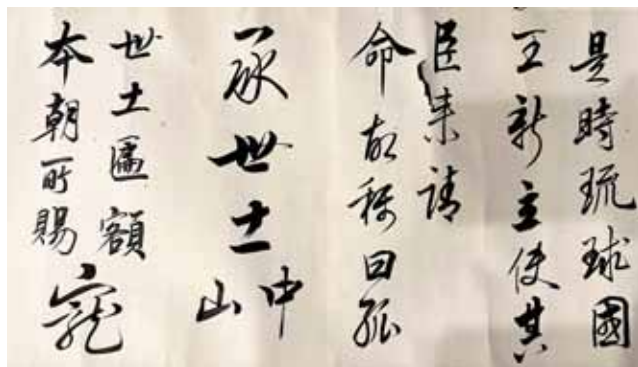 是時琉球國
王新立使其
臣来請
命故称曰孤
承世土
中山
世土匾額
本朝所賜
寵